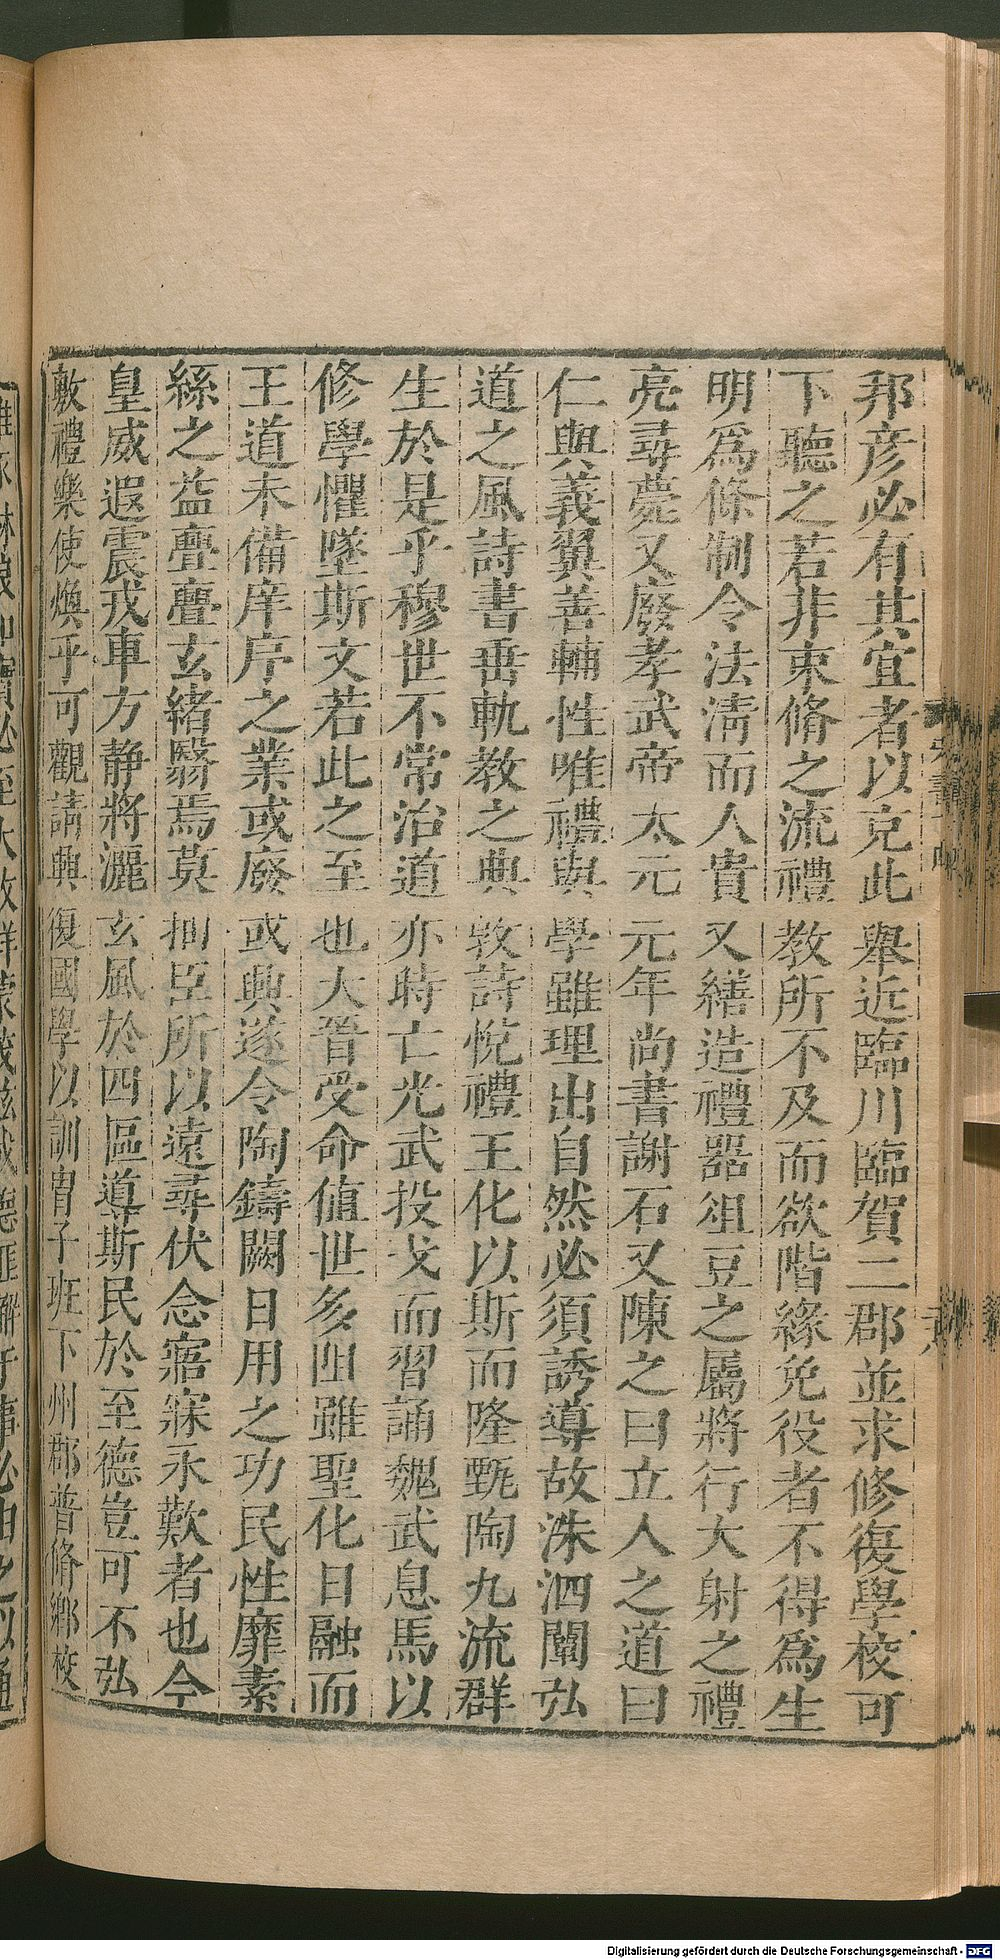 邦彦必有其宜者以克此舉近臨川臨賀二郡並求修復學校可
下聽之若非束脩之流禮教所不及而欲階緣免役者不得爲生
明爲條制令法淸而人貴又繕造禮器俎豆之屬將行大射之禮
亮尋薨又廢孝武帝太元元年尚書謝石又陳之曰立人之道曰
仁與義翼善輔性唯禮與學雖理出自然必須誘導故洙泗闡弘
道之風詩書垂軌教之典敦詩悅禮王化以斯而隆甄陶九流群
生於是乎穆世不常治道亦時亡光武投戈而習誦魏武息馬以
修學懼墜斯文若此之至也大晉受命値世多阻雖聖化日融而
王道未備庠序之業或廢或興遂令陶鑄闕日用之功民性靡素
絲之益亹亹玄緒翳焉莫抽臣所以遠尋伏念寤寐永歎者也今
皇威遐震戎車方静將灑玄風於四區導斯民於至德豈可不弘
敷禮樂使煥乎可觀請興復國學以訓冑子班下州郡普脩鄕校
Digitalisierung gefördert durch die Deutsche Forschungsgemeinschaft - DFG